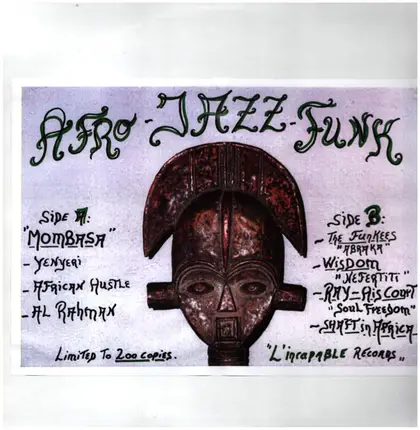 AFRO-JAZZ-FUNK
SIDE A:
"MOMBASA"
- YENYERI
- AFRICAN HUSTLE
- AL RAHMAN
SIDE B:
- THE FUNKEES
"ABRAKA"
- WISDOM
"NEFERTITI"
- RAY-AISCOURT
"SOUL FREEDOM"
- SHAFT in AFRICA
LIMITED TO 200 COPIES.
"L'INCAPABLE RECORDS"